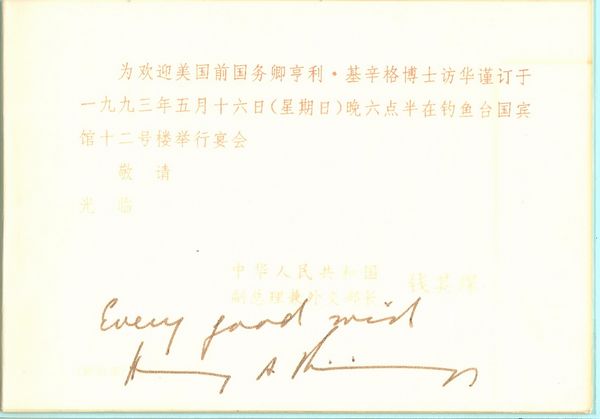 为欢迎美国前国务卿亨利·基辛格博士访华谨订于
一九九三年五月十六日(星期日)晚六点半在钓鱼台国宾
馆十二号楼举行宴会
敬 请
光 临
中华人民共和国
副总理兼外交部长 钱其琛
Every good wish
Henry A. Kissinger